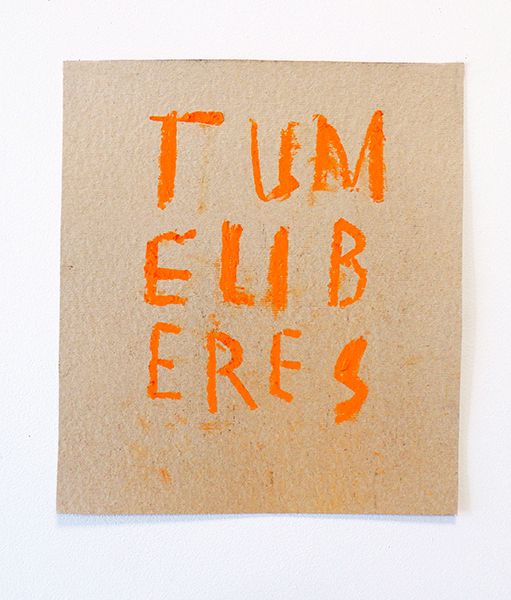 TUM
ELIB
ERES